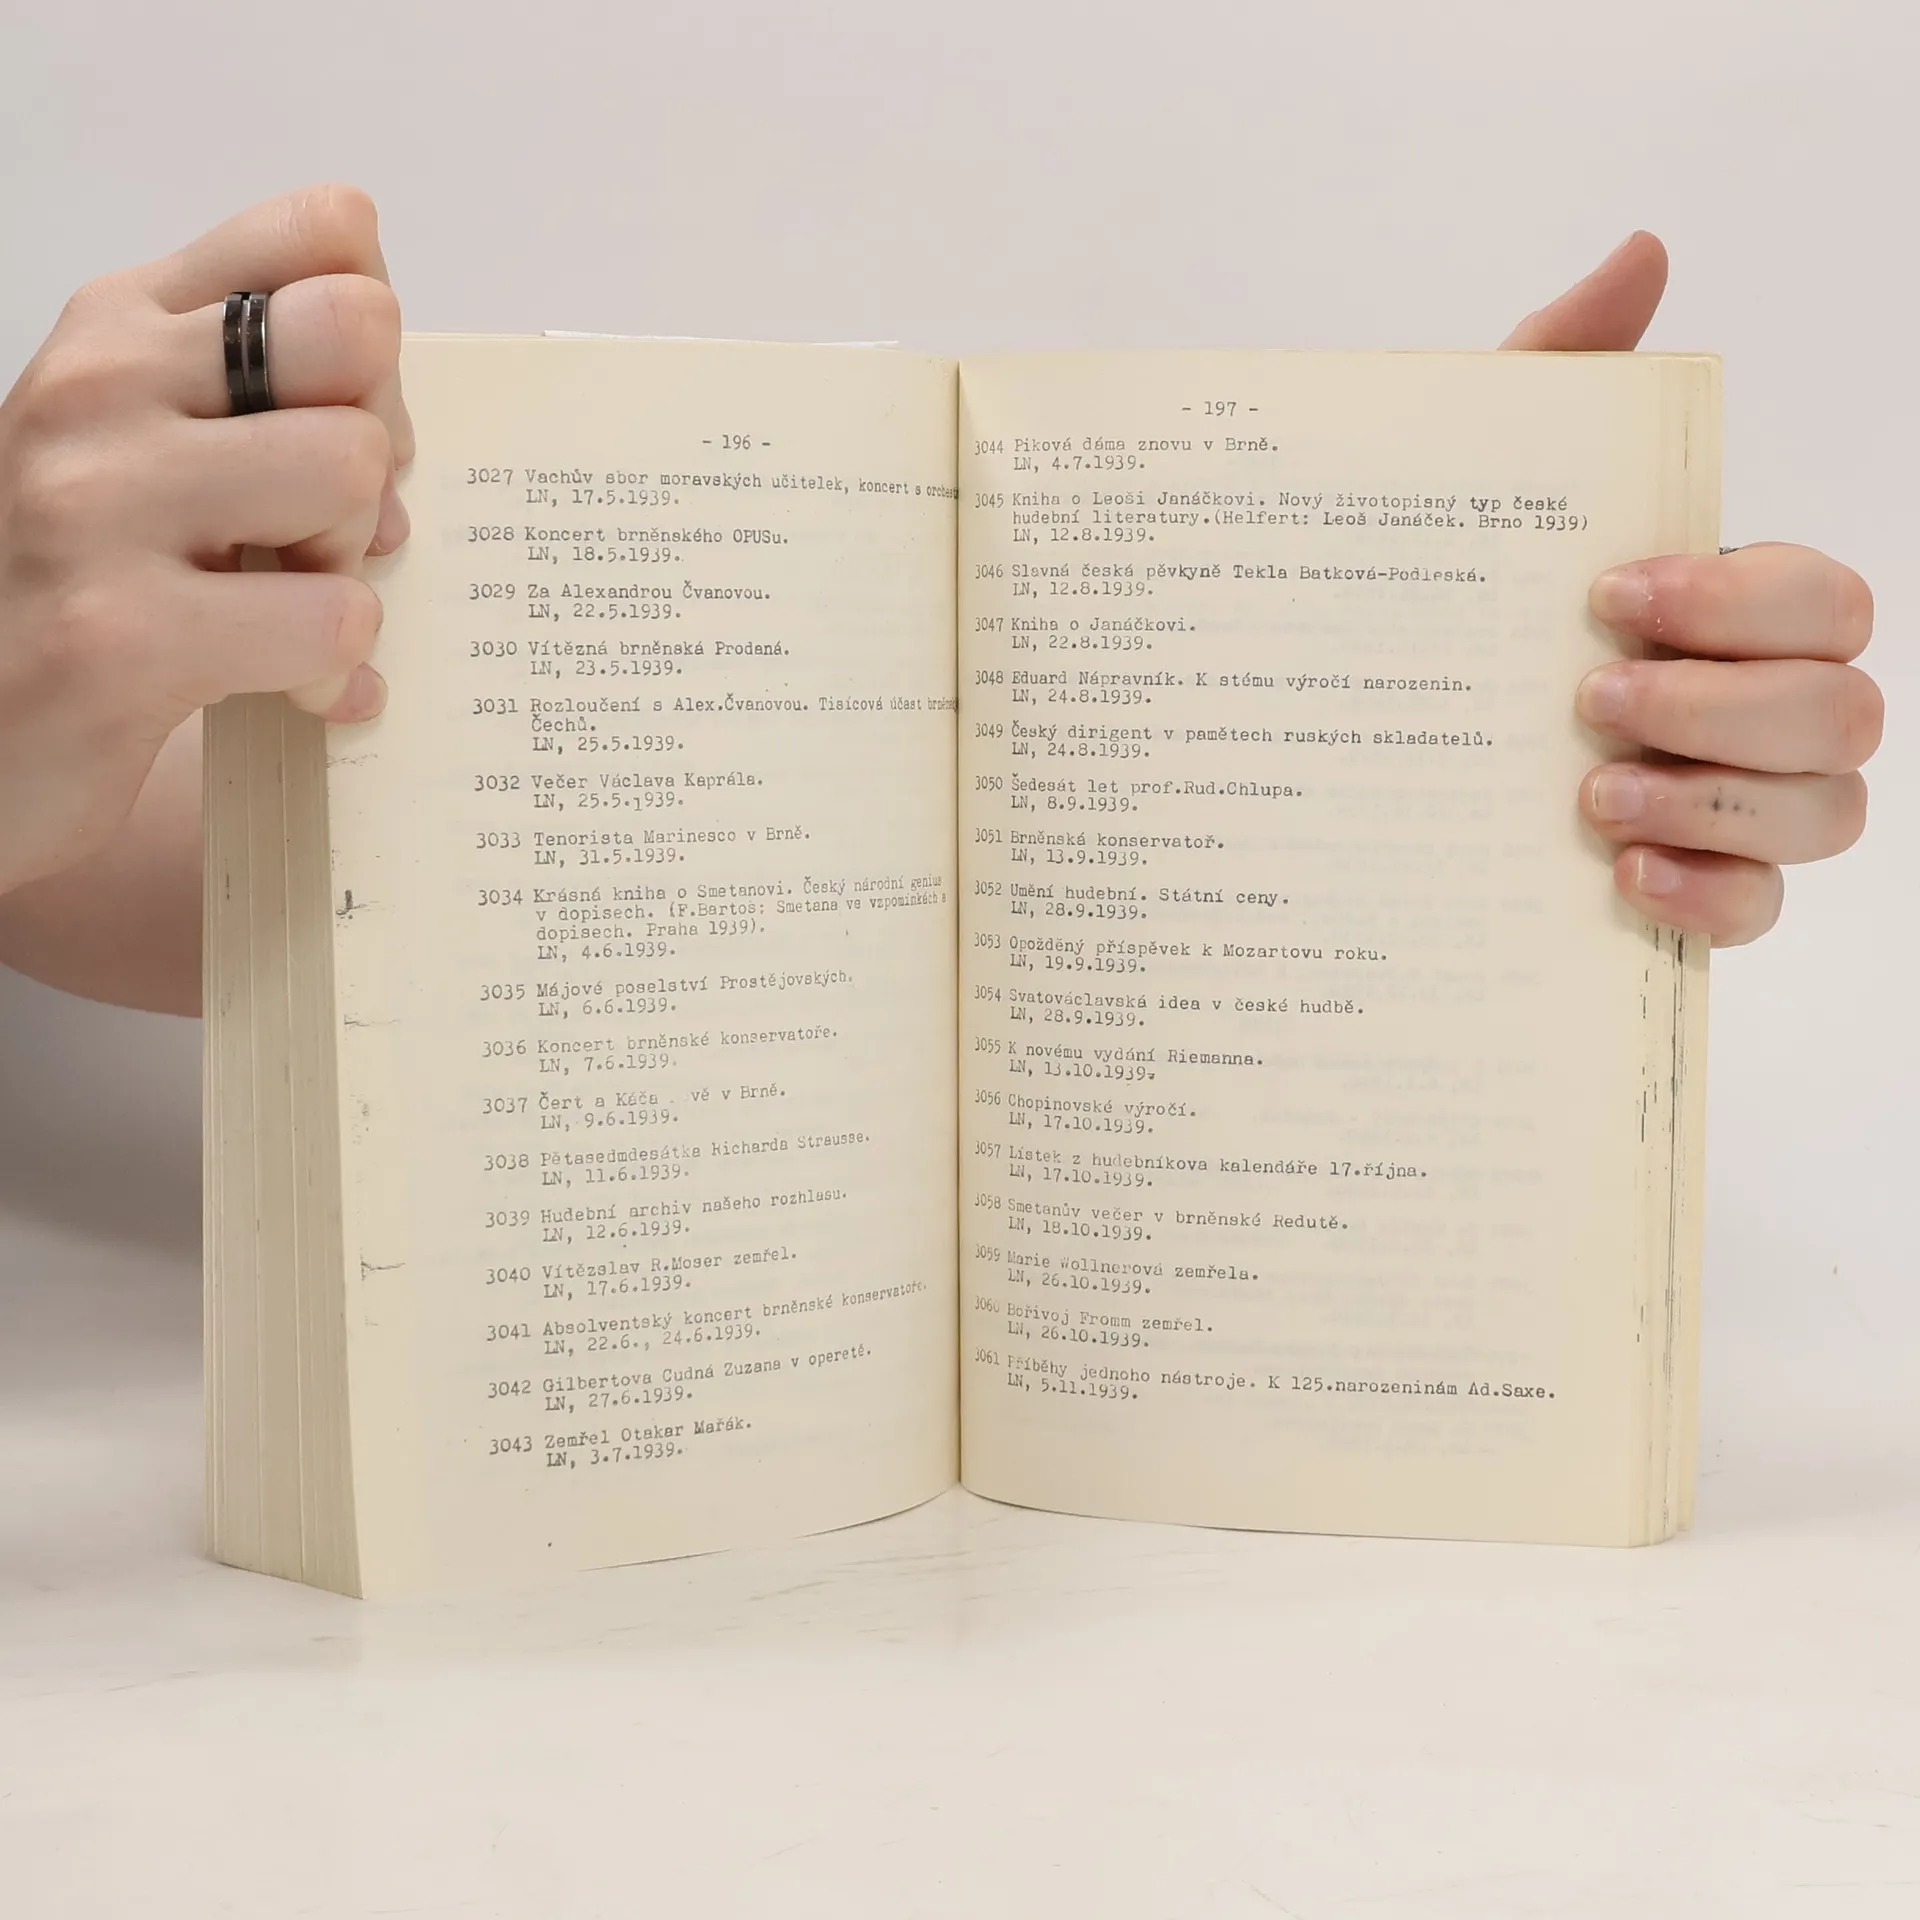 - 196 -
3027 Vachův sbor moravských učitelek, koncert s
LN, 17.5.1939.
3028 Koncert brněnského OPUSu.
LN, 18.5.1939.
3029 Za Alexandrou Čvanovou.
LN, 22.5.1939.
3030 Vítězná brněnská Prodaná.
LN, 23.5.1939.
3031 Rozloučení s Alex.Čvanovou. Tisícová účast
Čechů.
LN, 25.5.1939.
3032 Večer Václava Kaprála.
LN, 25.5.1939.
3033 Tenorista Marinesco v Brně.
LN, 31.5.1939.
3034 Krásná kniha o Smetanovi. Český národní genius
v dopisech. (F.Bartoš: Smetana ve vzpomínkách a
dopisech. Praha 1939).
LN, 4.6.1939.
3035 Májové poselství Prostějovských.
LN, 6.6.1939.
3036 Koncert brněnské konservatoře.
LN, 7.6.1939.
3037 Čert a Káča vě v Brně.
LN, 9.6.1939.
3038 Pětasedmdesátka Richarda Strausse.
LN, 11.6.1939.
3039 Hudební archiv našeho rozhlasu.
LN, 12.6.1939.
3040 Vítězslav R.Moser zemřel.
LN, 17.6.1939.
3041 Absolventský koncert brněnské konservatoře.
LN, 22.6., 24.6.1939.
3042 Gilbertova Cudná Zuzana v operetě.
LN, 27.6.1939.
3043 Zemřel Otakar Mařák.
LN, 3.7.1939.
- 197 -
3044 Piková dáma znovu v Brně.
LN, 4.7.1939.
3045 Kniha o Leoši Janáčkovi. Nový životopisný typ české
hudební literatury.(Helfert: Leoš Janáček. Brno 1939)
LN, 12.8.1939.
3046 Slavná česká pěvkyně Tekla Batková-Podleská.
LN, 12.8.1939.
3047 Kniha o Janáčkovi.
LN, 22.8.1939.
3048 Eduard Nápravník. K stému výročí narozenin.
LN, 24.8.1939.
3049 Český dirigent v pamětech ruských skladatelů.
LN, 24.8.1939.
3050 Šedesát let prof.Rud.Chlupa.
LN, 8.9.1939.
3051 Brněnská konservatoř.
LN, 13.9.1939.
3052 Umění hudební. Státní ceny.
LN, 28.9.1939.
3053 Opožděný příspěvek k Mozartovu roku.
LN, 19.9.1939.
3054 Svatováclavská idea v české hudbě.
LN, 28.9.1939.
3055 K novému vydání Riemanna.
LN, 13.10.1939.
3056 Chopinovské výročí.
LN, 17.10.1939.
3057 Lístek z hudebníkova kalendáře 17.října.
LN, 17.10.1939.
3058 Smetanův večer v brněnské Redutě.
LN, 18.10.1939.
3059 Marie Wollnerová zemřela.
LN, 26.10.1939.
3060 Bořivoj Fromm zemřel.
LN, 26.10.1939.
3061 Příběhy jednoho nástroje. K 125.narozeninám Ad.Saxe.
LN, 5.11.1939.